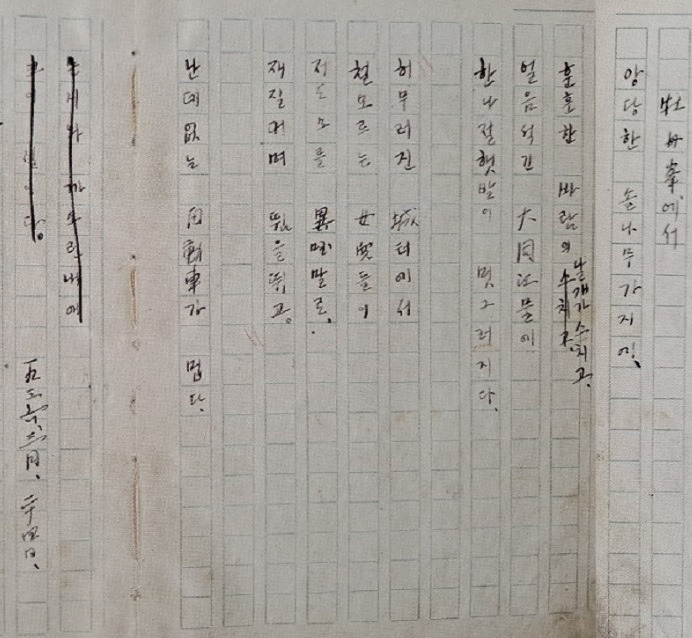 牡丹峯에서
앙당한 솔나무가지에,
훈훈한 바람의 날개가 스치고,
얼음석긴 大同江물에
한나절햇발이 밋그러지다.
허무러진 城터에서
철모르는 女兒들이
저도모를 異國말로,
재질대며 뜀을뛰고.
난데없는 自動車가 밉다.
一九三六、三月、二十四日、